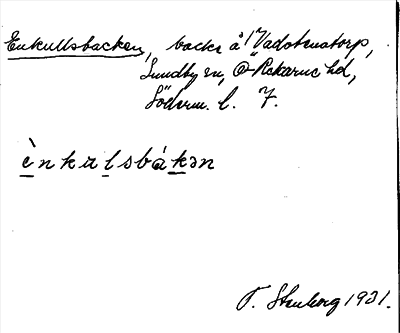 Enkullsbacken, backe å 1/7 Vadstenatorp,
Sundby sn, Ö-Rekarne hd,
Söderm. l. 7.
ènkulsbákən
T. Stenborg 1931.